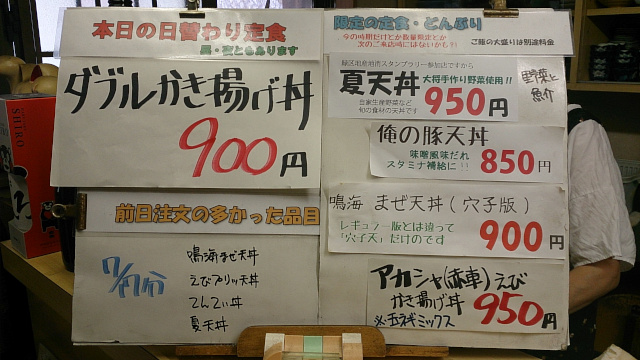 本日の日替わり定食
昼・夜ともあります
ダブルかき揚げ丼
900円
前日注文の多かった品目
鳴海まぜ天丼
えびプリッ天丼
てんてぃ丼
夏天丼
限定の定食・どんぶり
今の時期だけとか数量限定とか
次のご来店時にはないかも!!
ご飯の大盛りは別途料金
緑区地産地消スタンプラリー参加店ですから
夏天丼
大将手作り野菜使用!!
自家生産野菜など
旬の食材の天丼です
950円
野菜と
魚介
俺の豚天丼
味噌風味だれ
スタミナ補給に!!
850円
鳴海 まぜ天丼(穴子版)
レギュラー版とは違って
「穴子天」だけのです
900円
アカシャ(赤車)えび
かき揚げ丼
※玉ネギミックス
950円
SHIRO